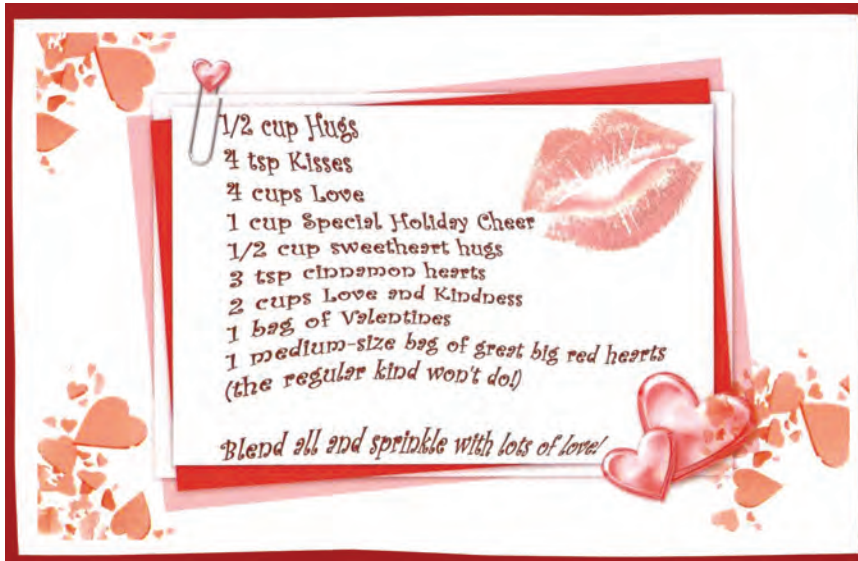 1/2 cup Hugs
4 tsp Kisses
4 cups Love
1 cup Special Holiday Cheer
1/2 cup sweetheart hugs
3 tsp cinnamon hearts
2 cups Love and Kindness
1 bag of Valentines
1 medium-size bag of great big red hearts
(the regular kind won't do!)
Blend all and sprinkle with lots of love!